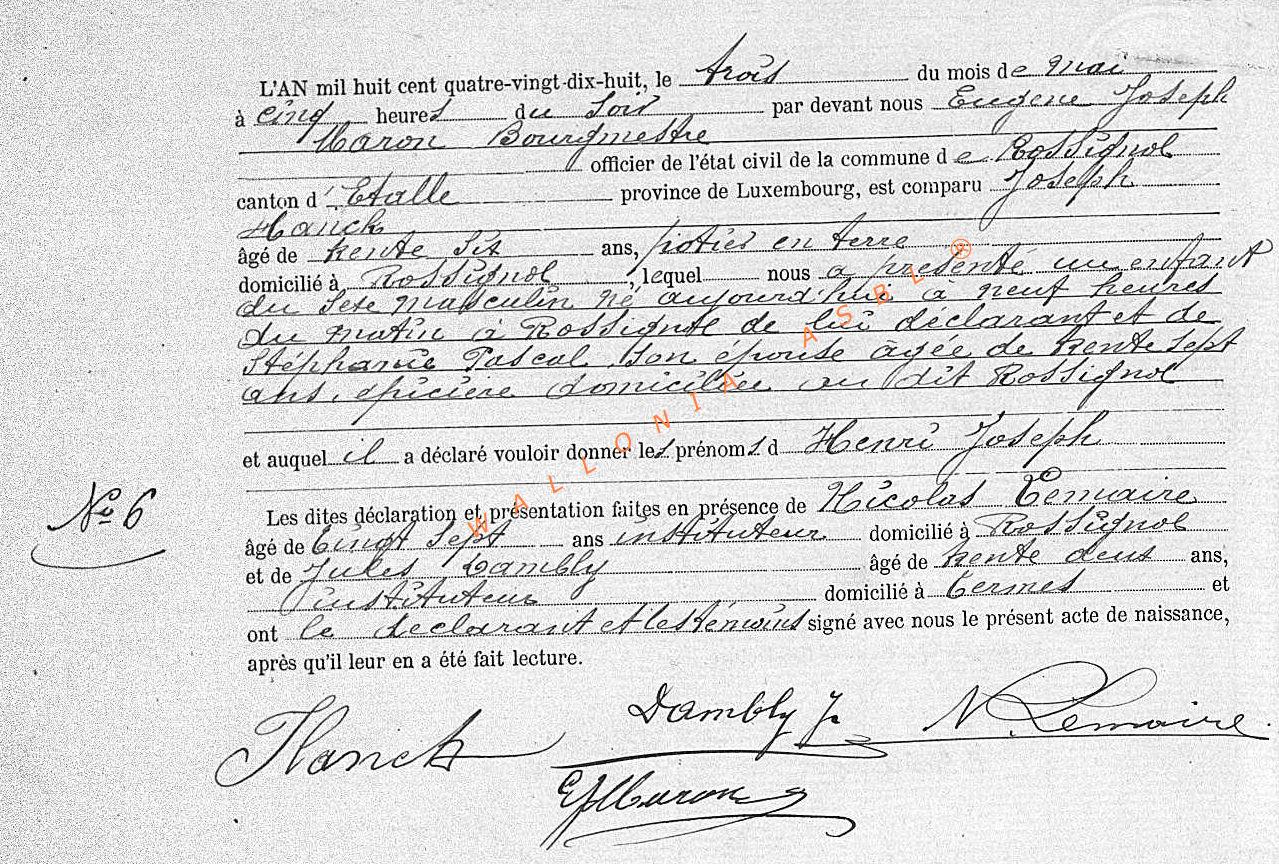 L'AN mil huit cent quatre-vingt-dix-huit, le trois du mois de mai
à cinq heures du soir par devant nous Eugène Joseph
Maron Bourgmestre
officier de l'état civil de la commune de Rossignol
canton d'Etalle province de Luxembourg, est comparu Joseph
Hanck
âgé de trente six ans, potier en terre
domicilié à Rossignol, lequel nous a présenté un enfant
du sexe masculin né aujourd'hui à neuf heures
du matin à Rossignol de lui déclarant et de
Stéphanie Pascal son épouse âgée de trente sept
ans, épicière domiciliée au dit Rossignol
et auquel il a déclaré vouloir donner les prénoms d Henri Joseph
No 6
Les dites déclaration et présentation faites en présence de Nicolas Lemaire
âgé de vingt sept ans instituteur domicilié à Rossignol
et de Jules Dambly âgé de trente deux ans,
instituteur domicilié à Termes et
ont le déclarant et les témoins signé avec nous le présent acte de naissance,
après qu'il leur en a été fait lecture.
Hanck Dambly J. N. Lemaire.
EJ Maron
WALLONIA ASBL ®